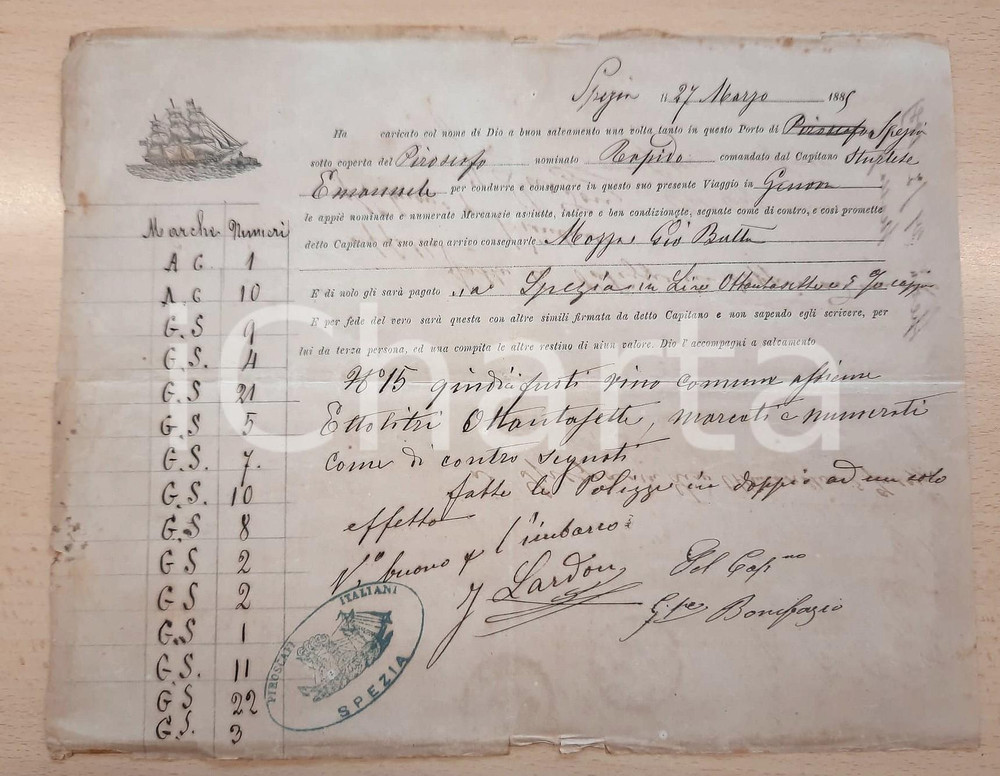 Spezia li 27 Marzo 1885
Ha caricato col nome di Dio a buon salvamento una volta tanto in questo Porto di Spezia
sotto coperta del Piroscafo nominato Rapido comandato dal Capitano Sturlese
Emanuele per condurre e consegnare in questo suo presente Viaggio in Genova
le appiè nominate e numerate Mercanzie asciutte, intiere e ben condizionate, segnate come di contro, e così promette
detto Capitano al suo salvo arrivo consegnarle Mazza Gio Batta
E di nolo gli sarà pagato a Spezia in Lire Ottantasette e 5 % cappa
E per fede del vero sarà questa con altre simili firmata da detto Capitano e non sapendo egli scrivere, per
lui da terza persona, ed una compita le altre restino di niun valore. Dio l'accompagni a salvamento
No 15 quindici fusti vino comune assieme
Ettolitri Ottantasette, marcati e numerati
come di contro segnati
fatte le Polizze in doppio ad un solo
effetto
Vo buono p l'imbarco
J Lardon
Pel Capno
Gpe Bonifazio
Marche Numeri
A G. 1
A. G 10
G. S 9
G. S. 4
G. S 21
G. S 5
G. S. 7.
G. S. 10
G. S 8
G S 2
G S 2
G. S 1
G. S. 11
G S 22
G. S. 3
PIROSCAFI ITALIANI
SPEZIA
iCharta